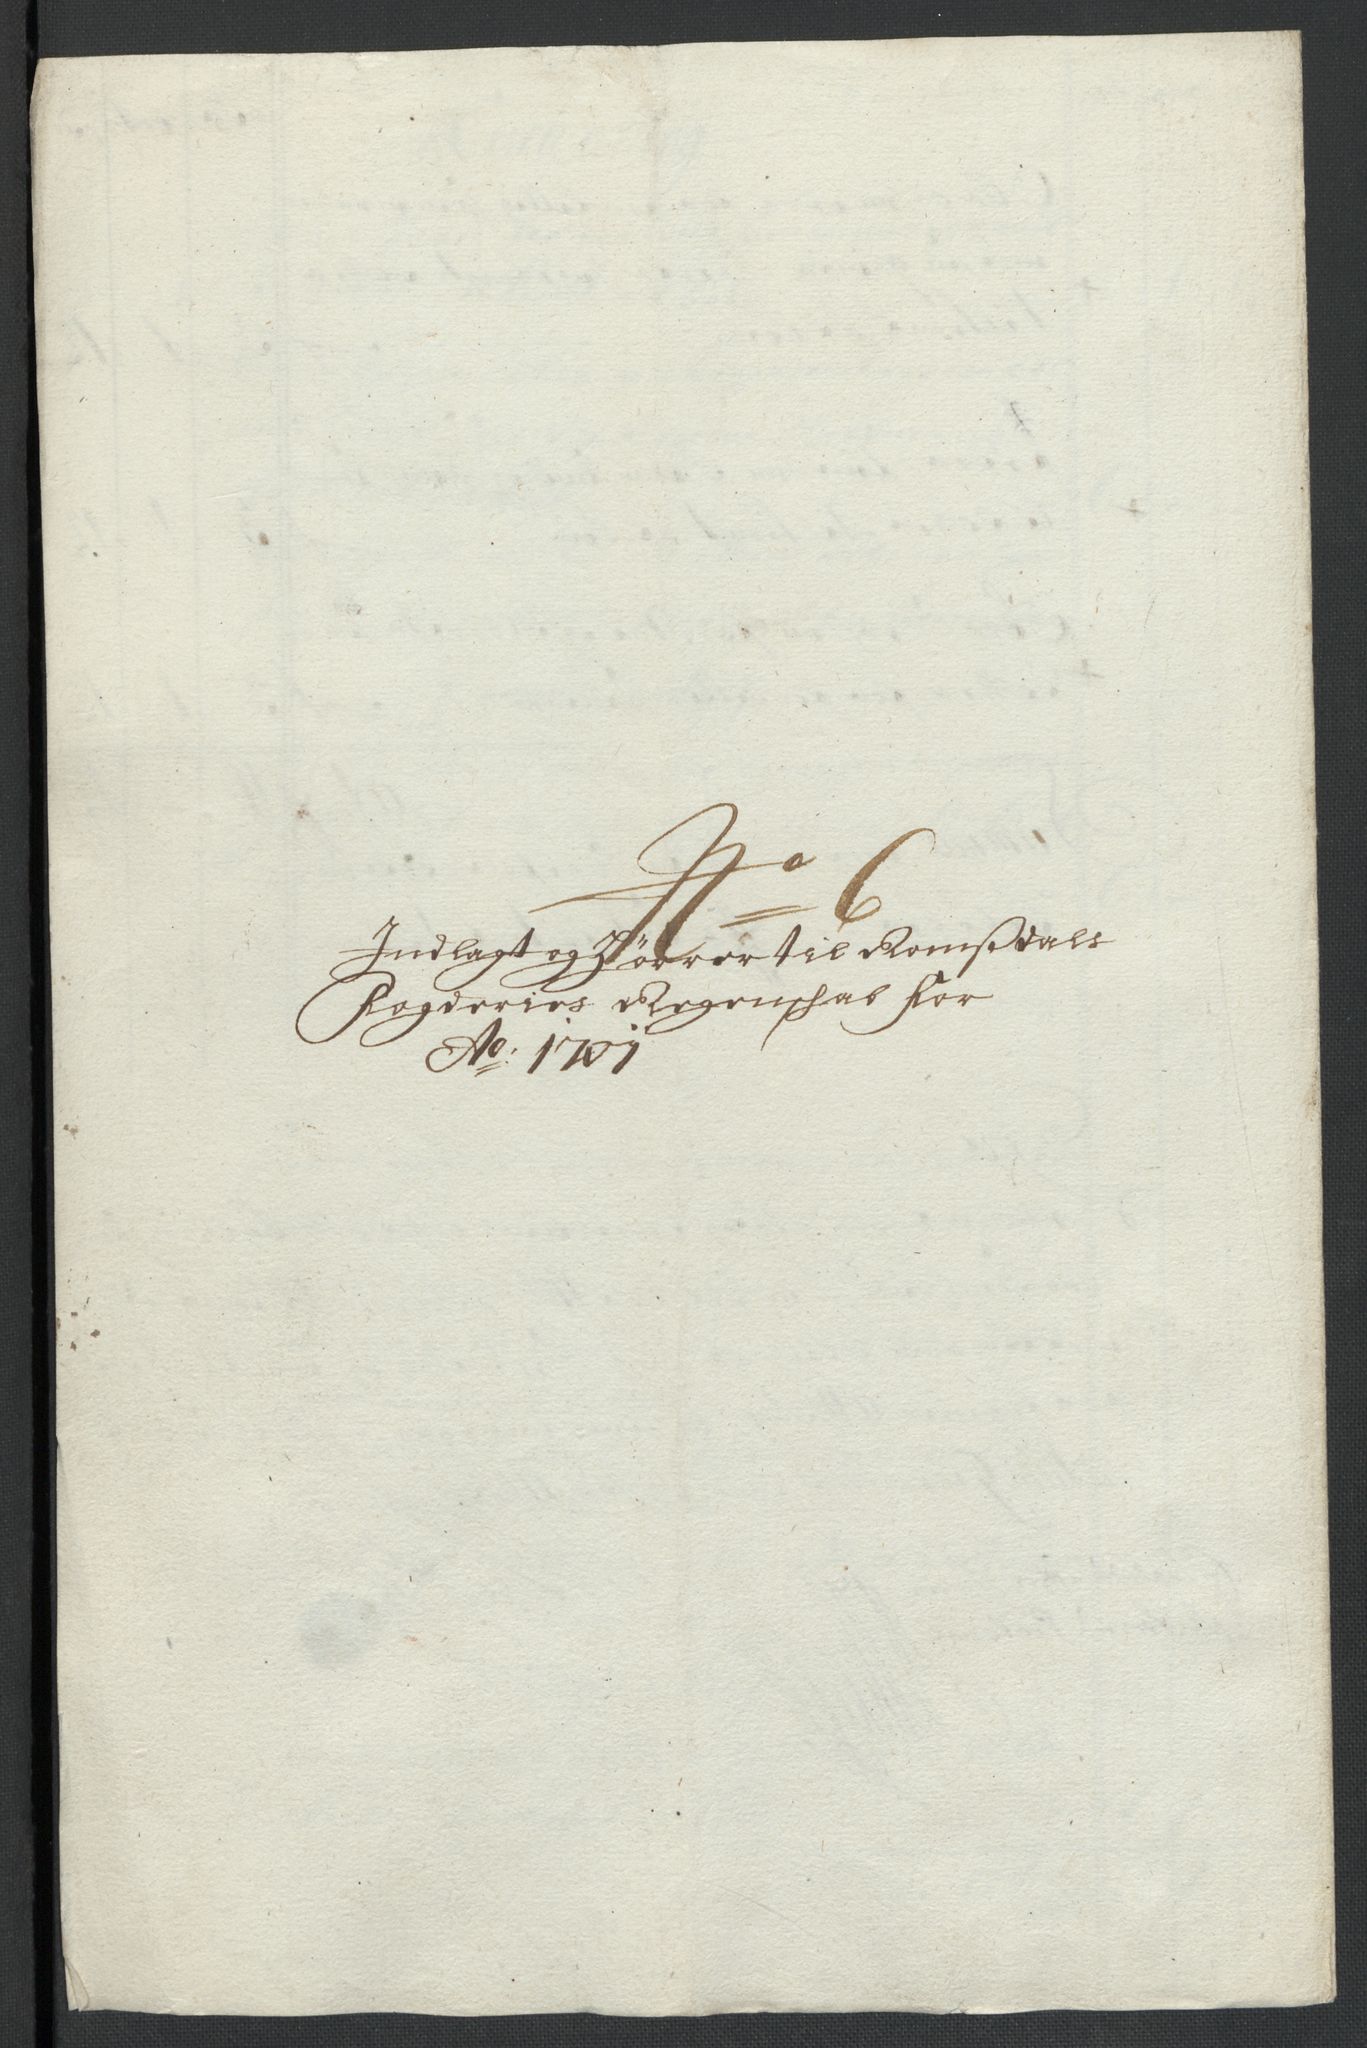 No 6
Indlagt og til Romßdals
Fogderies Regenschab for
Ao: 1701